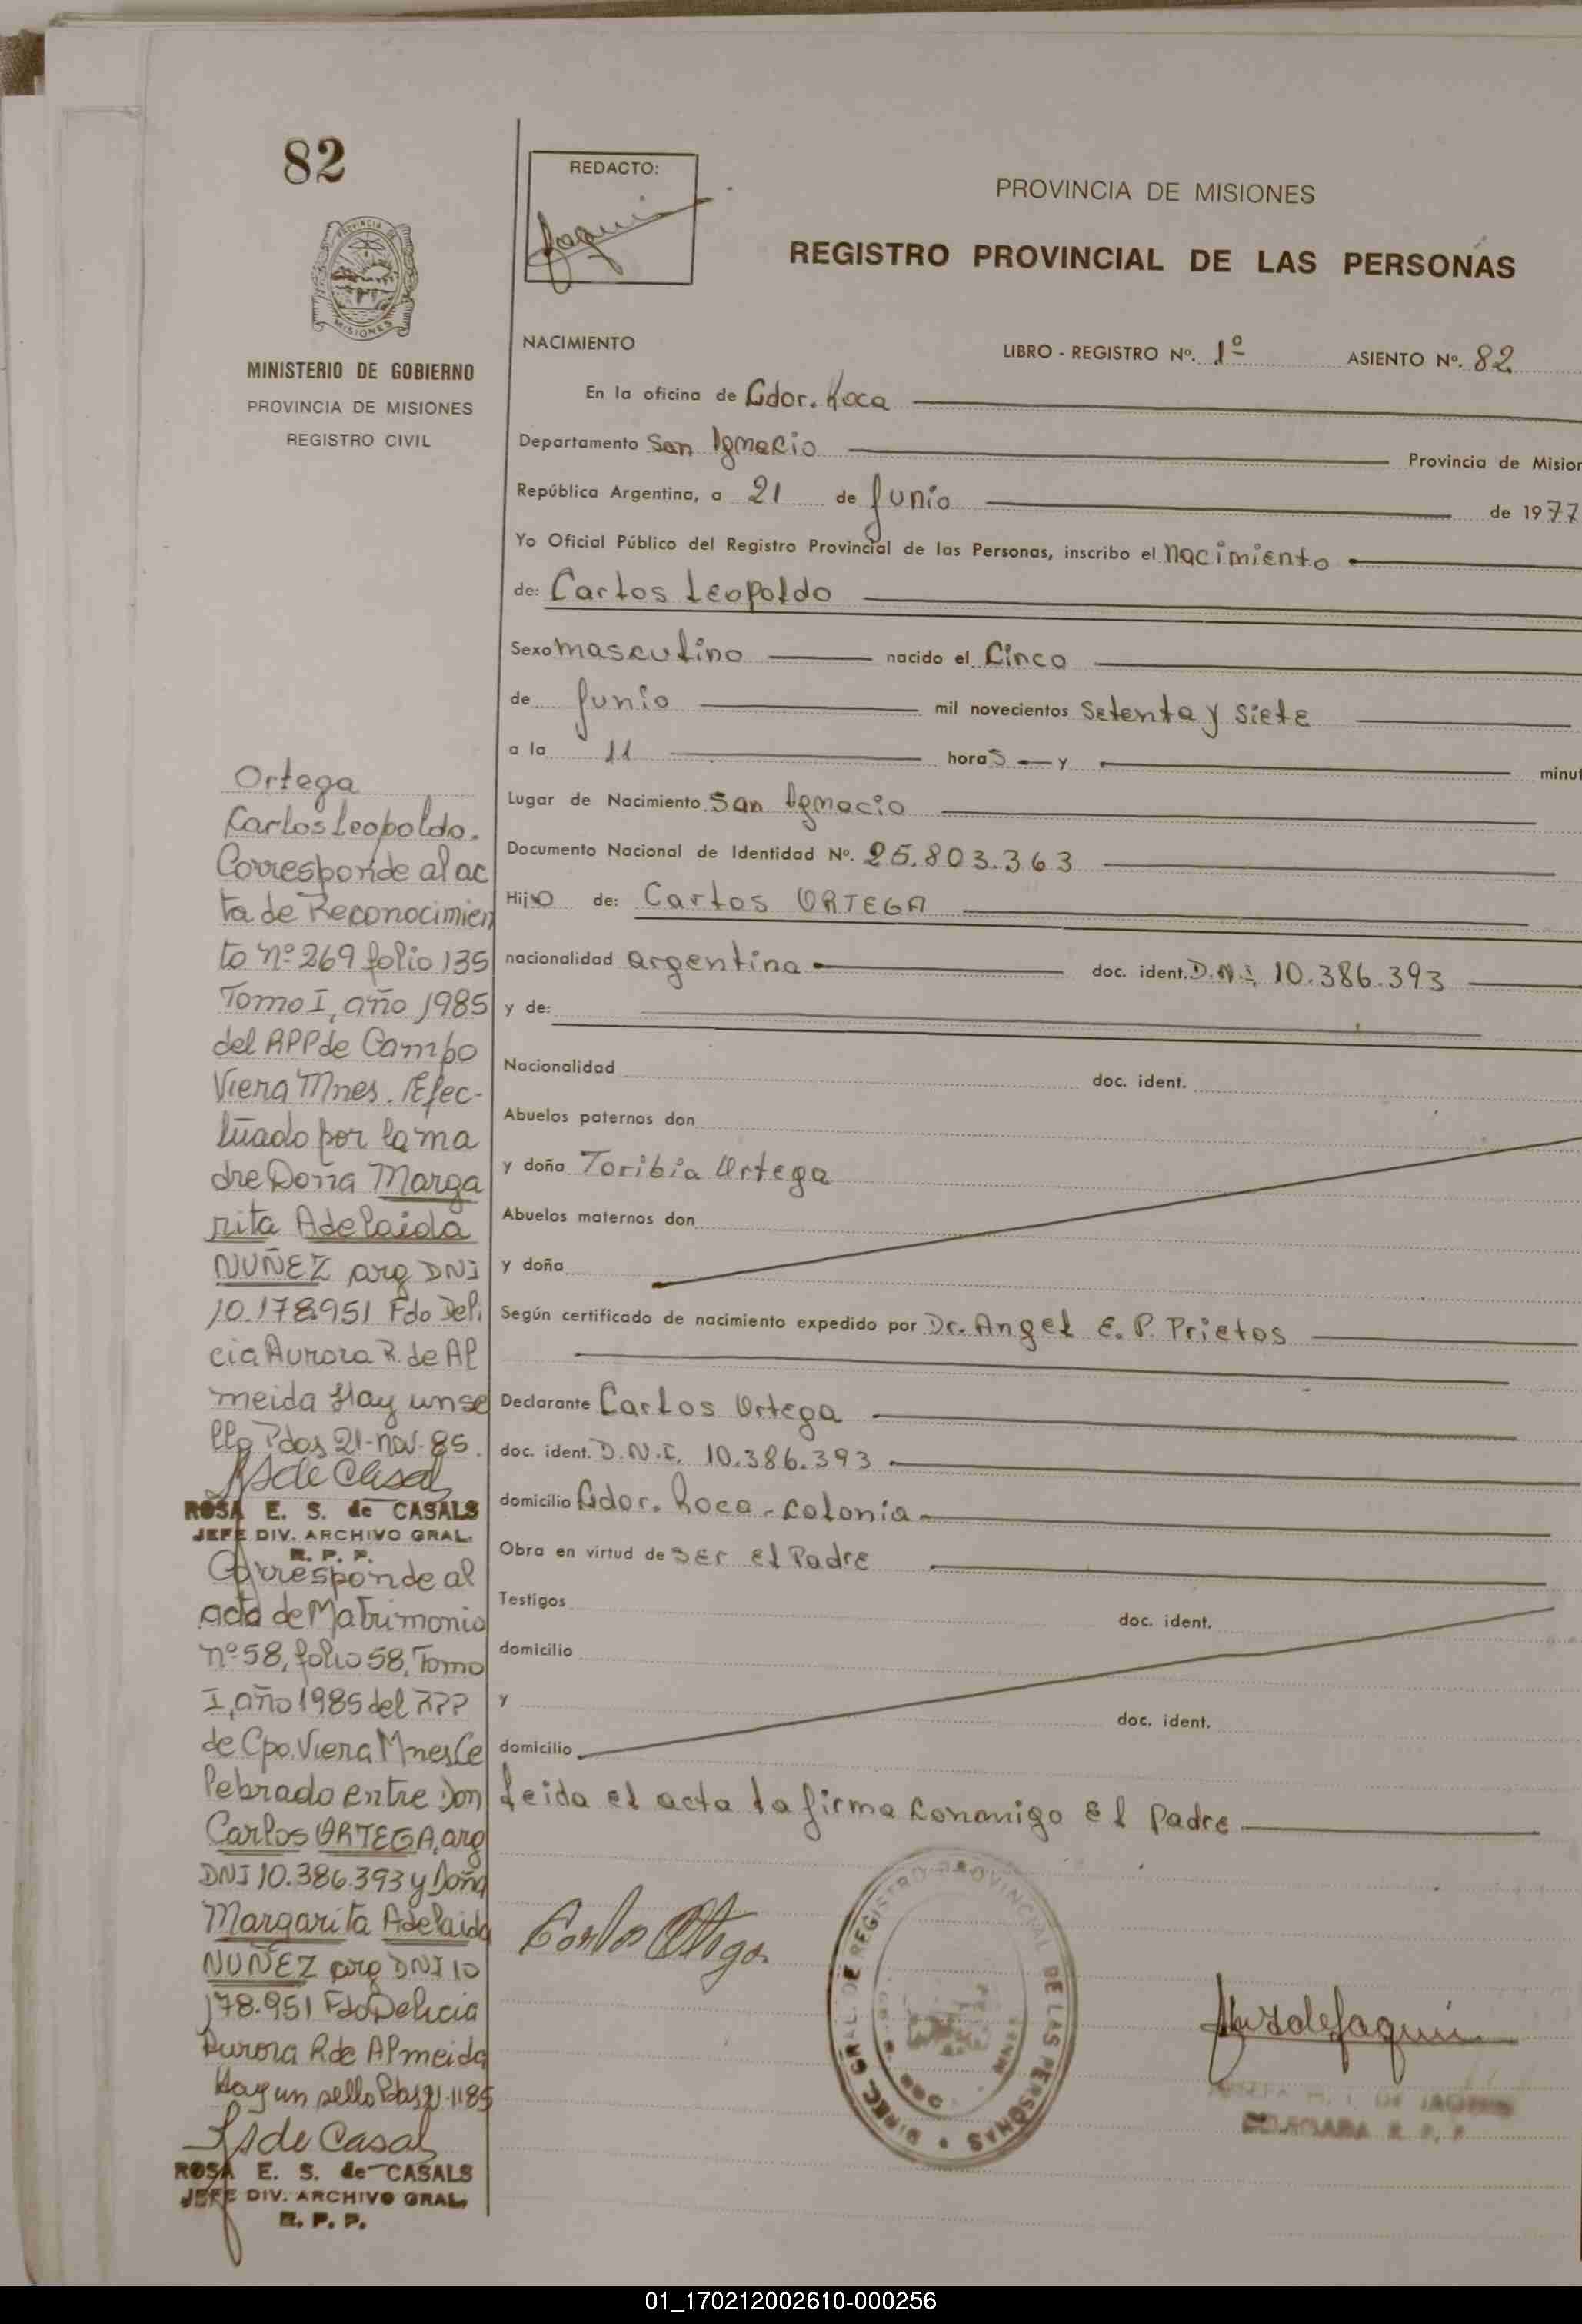 82
REDACTO:
PROVINCIA DE MISIONES
REGISTRO PROVINCIAL DE LAS PERSONAS
PROVINCIA DE
MISIONES
MINISTERIO DE GOBIERNO
PROVINCIA DE MISIONES
REGISTRO CIVIL
NACIMIENTO
LIBRO - REGISTRO Nº. 1º ASIENTO Nº. 82
En la oficina de Gdor. Roca
Departamento San Ignacio Provincia de Mision
República Argentina, a 21 de Junio de 1977
Yo Oficial Público del Registro Provincial de las Personas, inscribo el nacimiento
de: Carlos Leopoldo
Sexo masculino nacido el Cinco
de Junio mil novecientos Setenta y Siete
a la 11 horas y minut
Lugar de Nacimiento San Ignacio
Documento Nacional de Identidad Nº. 25.803.363
Hijo de: Carlos ORTEGA
nacionalidad argentina doc. ident. D.N.I. 10.386.393
y de:
Nacionalidad doc. ident.
Abuelos paternos don
y doña Toribia Ortega
Abuelos maternos don
y doña
Según certificado de nacimiento expedido por Dr. Angel E. P. Prietos
Declarante Carlos Ortega
doc. ident. D.N.I. 10.386.393
domicilio Gdor. Roca - Colonia
Obra en virtud de ser el Padre
Testigos doc. ident.
domicilio
y doc. ident.
domicilio
Leida el acta la firma conmigo el Padre
Carlos Ortega
DIREC. GRAL. DE REGISTRO PROVINCIAL DE LAS PERSONAS
DE JAQUIN
DELEGADA R. P. P.
Ortega
Carlos Leopoldo.
Corresponde al ac
ta de Reconocimien
to nº 269 folio 135
Tomo I, año 1985
del RPP de Campo
Viera Mnes. Efec-
tuado por la ma
dre Doña Marga
rita Adelaida
NUÑEZ arg DNI
10.178.951 Fdo Deli
cia Aurora R. de Al
meida Hay un se
llo Pdas 21-nov-85.
RSde Casals
ROSA E. S. de CASALS
JEFE DIV. ARCHIVO GRAL.
R. P. P.
Corresponde al
acta de Matrimonio
nº 58, folio 58, Tomo
I, año 1985 del RPP
de Cpo. Viera Mnes Ce
lebrado entre Don
Carlos ORTEGA, arg
DNI 10.386.393 y Doña
Margarita Adelaida
NUÑEZ arg DNI 10
178.951 Fdo Delicia
Aurora R de Almeida
Hay un sello Pdas 21-11 85
RSde Casals
ROSA E. S. de CASALS
JEFE DIV. ARCHIVO GRAL.
R. P. P.
01_170212002610-000256